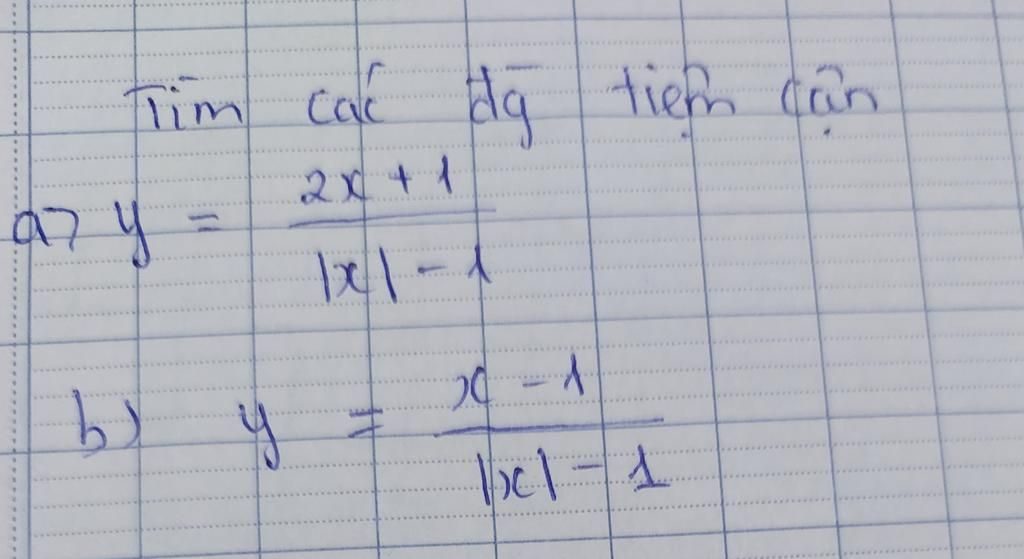 Tìm các đg tiệm cận
a) y = \frac{2x + 1}{|x| - 1}
b) y = \frac{x - 1}{|x| - 1}